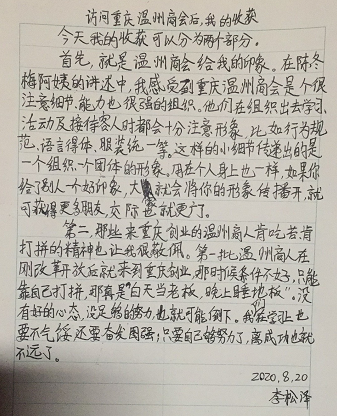 访问重庆温州商会后,我的收获
今天我的收获可以分为两个部分。
首先,就是温州商会给我的印象。在陈冬
梅阿姨的讲述中,我感受到重庆温州商会是个很
注意细节,能力也很强的组织。他们在组织出去学习
活动及接待客人时都会十分注意形象,比如行为规
范、语言得体、服装统一等。这样的小细节传递出的是
一个组织、一个团体的形象。用在个人身上也一样,如果你
给了别人一个好印象,大就会将你的形象传播开,就
可获得更多朋友,交际也就更广。
第二,那些来重庆创业的温州商人肯吃苦肯
打拼的精神也让我很敬佩。第一批温州商人在
刚改革开放后就来到重庆创业,那时候条件不好,只能
靠自己打拼,那真是“白天当老板,晚上睡地板”。没
有好的心态,没足够的努力,也就可能倒下。我们在学习上也
要不气馁,还要奋发图强;只要自己够努力了,离成功也就
不远了。
2020.8.20
李松泽